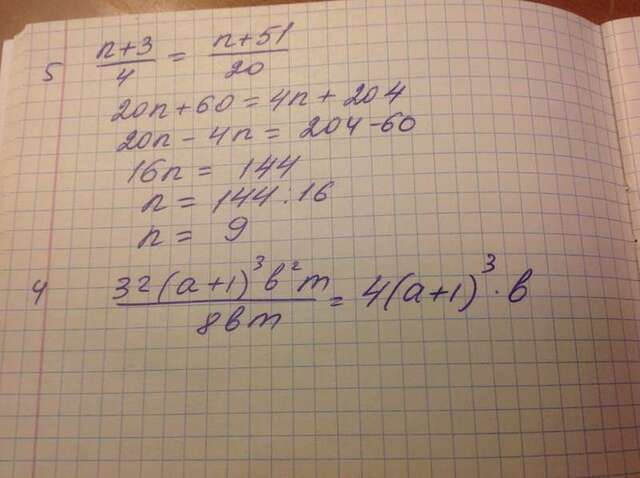 5 (n+3)/4 = (n+51)/20
20n+60=4n+204
20n-4n=204-60
16n=144
n=144:16
n=9
4 (32(a+1)³b²m)/(8bm)=4(a+1)³·b